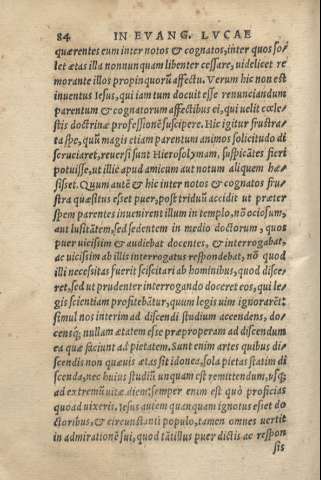 84 IN EVANG. LVCAE
quærentes eum inter notos & cognatos, inter quos so/
let ætas illa nonnunquam libenter cessare, uidelicet re
morante illos propinquorũ affectu. Verum hic non est
inuentus Iesus, qui iam tum docuit esse renunciandum
parentum & cognatorum affectibus ei, qui uelit cœle/
stis doctrinæ professionẽ suscipere. Hic igitur frustra/
ta spe, quũ magis etiam parentum animos solicitudo di
scruciaret, reuersi sunt Hierosolymam, suspicãtes fieri
potuisse, ut illic apud amicum aut notum aliquem hæ/
sisset. Quum autẽ & hic inter notos & cognatos fru/
stra quæsitus esset puer, post triduũ accidit ut præter
spem parentes inuenirent illum in templo, nõ ociosum,
aut lusitãtem, sed sedentem in medio doctorum, quos
puer uicissim & audiebat docentes, & interrogabat,
ac uicissim ab illis interrogatus respondebat, nõ quod
illi necessitas fuerit sciscitari ab hominibus, quod disce/
ret, sed ut prudenter interrogando doceret eos, qui le/
gis scientiam profitebãtur, quum legis uim ignorarẽt:
simul nos interim ad discendi studium accendens, do/
censq; nullam ætatem esse præproperam ad discendum
ea quæ faciunt ad pietatem. Sunt enim artes quibus di/
scendis non quæuis ætas sit idonea, sola pietas statim di
scenda, nec huius studiũ unquam est remittendum, usq;
ad extremũ uitæ diem: semper enim est quò proficias
quoad uixeris. Iesus autem quanquam ignotus esset do
ctoribus, & circunstanti populo, tamen omnes uertit
in admirationẽ sui, quod tãtillus puer dictis ac respon
sis